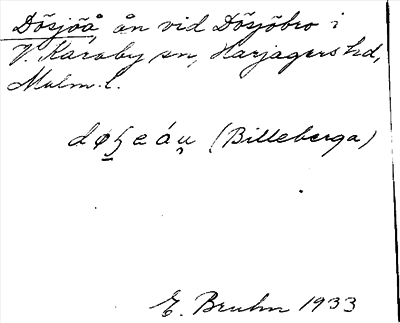 Dösjöå, ån vid Dösjöbro i
V. Karaby sn, Harjagers hd,
Malm. l.
(Billeberga)
E. Bruhn 1933